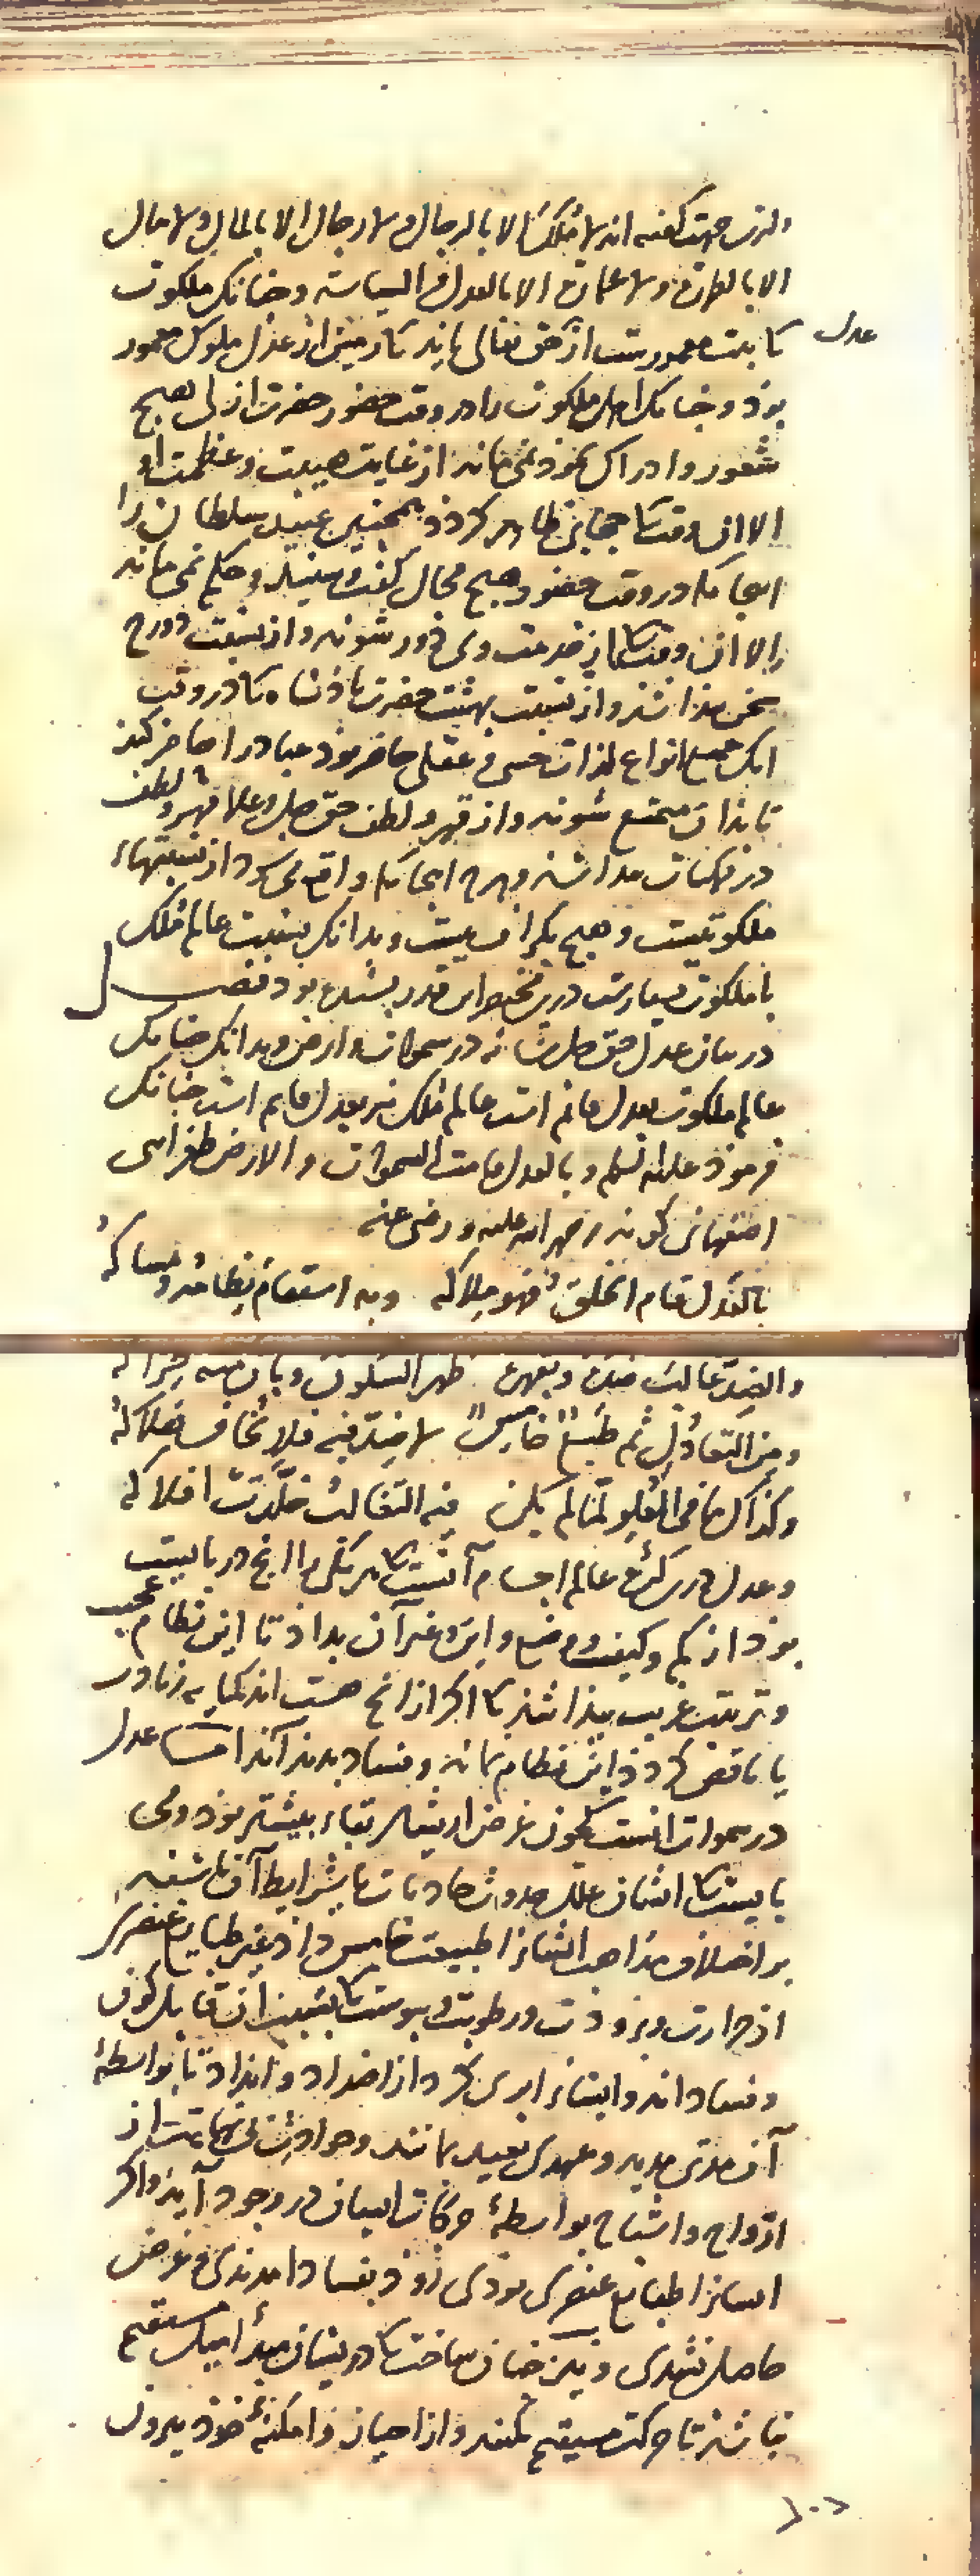 وازین جهت گفته اند لا مُلک الا بالرجال و لا رجال الا بالمال و لا مال
الا بالعمارة و لا عمارة الا بالعدل و السیاسة و چنانک ملکوت
عدل
کا ثابت معمورست از حق تعالی باید کا زمین از عدل ملوک معمور
بوذ و چنانک اهل ملکوت را در وقت حضور حضرت ازلی هیچ
شعور و ادراک بخوذ نمی ماند از غایت هیبت و عظمت او
الا آن وقت کا حجابی ظاهر کردذ همچنین عبید سلطان را
اینجا کا در وقت حضور هیچ مجال گفت و شنید و حکم نمی ماند
الا آن وقت کا از خدمت وی دور شوند و از نسبت دوزخ
سخن باشذ و از نسبت بهشت حضرت باذشاه کا در وقت
آنک جمیع انواع لذات حسی و عقلی حاضر بوذ عباد را حاضر کند
تا بذان متمتع شوند و از قهر و لطف حق جل و علا قهر و لطف
در ممکنات بیدا شد و هرچ اینجا کا واقع می شود از نسبتهاء
ملکوتیست و هیچ بگزاف نیست و بدانک نسبت عالم ملک
با ملکوت بسیارست درین مختصر این قدر بسنده بود فصل
در بیان عدل حق جل شانه در سموات و ارض و بدانک چنانک
عالم ملکوت بعدل قائم است عالم ملک نیز بعدل قایم است چنانک
فرموذ علیه السلم و بالعدل قامت السموات و الارض طغرایی
اصفهانی گوید رحمه الله علیه و رضی عنه
بالعدل قام الخلق فهو ملاکه و به استقام نظامه و مساکه
والضد غالب ضده و بقهره ظهر السکون و بان منه حراکه
و من التعادل ثم طبع خامس لا ضد فیه فلا یخاف هلاکه
و کذاک ما فی العلو لما لم یکن فیه التغالب خلدت افلاکه
و عدل درین کره عالم اجسام آنست کا هر یکی را انچ دربایست
بوذ از کم و کیف و وضع و این و غیر آن بداذ تا این نظام عجیب
و ترتیب غریب بیذا شذ کا اگر از انچ هست اندکمایه زیادت
یا ناقص کردذ این نظام نماند و فساد بدید آید اما عدل
در سموات آنست کچون غرض از یشان بقاء بیشتر بوذ و می
بایست کا ایشان علل حدوث حادثات یا شرایط آن باشند
بر اختلاف مذاهب ایشانرا طبیعت خامس داذ غیر طبایع عنصری
از حرارت و برودت و رطوبت و یبوست کا بسبب آن قابل کون
و فساد اند و ایشانرا بری کرد از اضداد و انداد تا بواسطهٔ
آن مدتی مدید و عهدی بعید بمانند و حوادث بی نهایت از
ارواح و اشباح بواسطهٔ حرکات ایشان در وجود آید و اگر
ایشانرا طبایع عنصری بودی زوذ بفساد آمدندی و غرض
حاصل نشدی و نیز چنان ساخت کا در یشان مبدأ میل مستقیم
نباشذ تا حرکت مستقیم نکنند و از احیاز و امکنهٔ خوذ بیرون